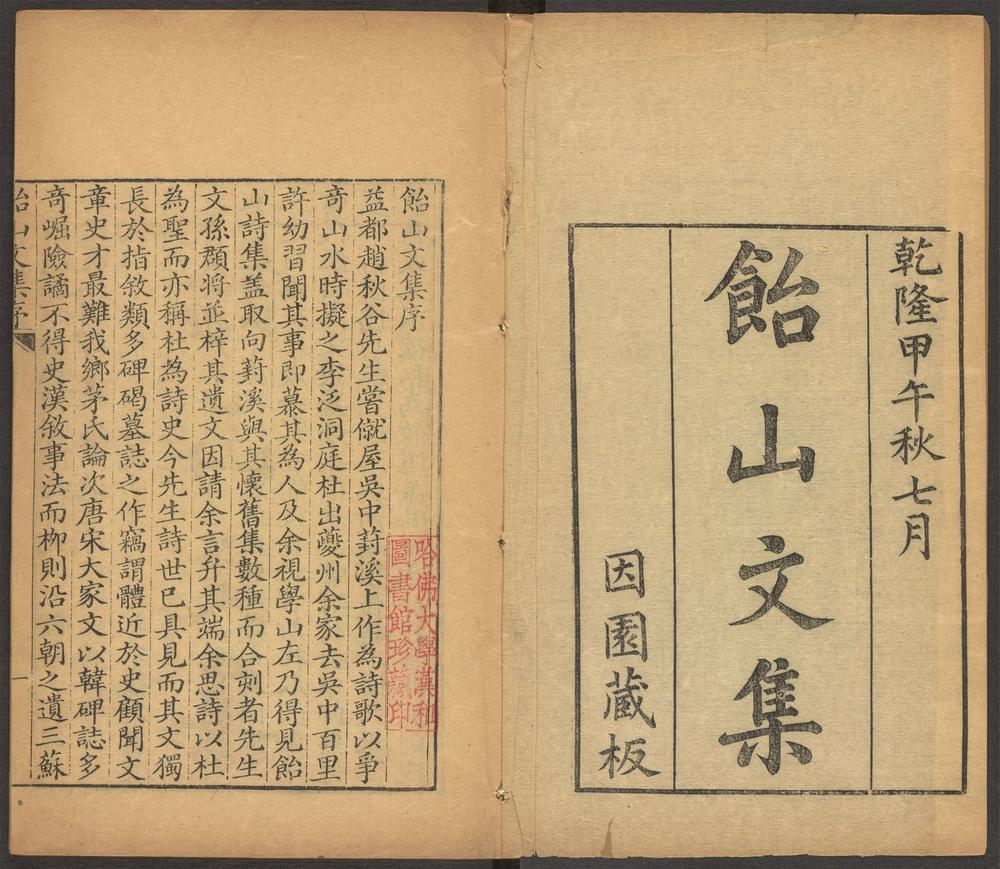 乾隆甲午秋七月
飴山文集
因園蔵板
飴山文集序
益都趙秋谷先生嘗僦屋吳中葑溪上作為詩歌以爭
竒山水時擬之李泛洞庭杜出夔州余家去吳中百里
許幼習聞其事即慕其為人及余視學山左乃得見飴
山詩集盖取向葑溪與其懷舊集數種而合刻者先生
文孫顟將並梓其遺文因請余言弁其端余思詩以杜
為聖而亦稱杜為詩史今先生詩世已具見而其文獨
長於指敘類多碑碣墓誌之作竊謂體近於史顧聞文
章史才最難我鄉茅氏論次唐宋大家文以韓碑誌多
竒崛險譎不得史漢敘事法而栁則沿六朝之遺三蘇
飴山文集序
一
哈佛大學漢和
圖書館珍藏印